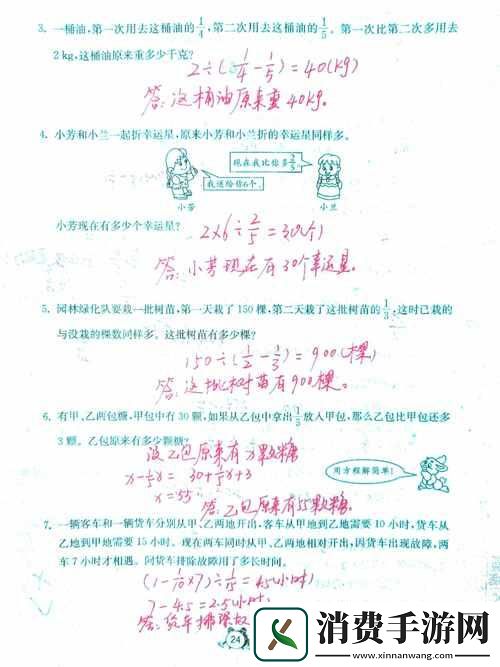 3. 一桶油,第一次用去这桶油的1/4,第二次用去这桶油的1/5。第一次比第二次多用去
2 kg,这桶油原来重多少千克?
2÷(1/4-1/5)=40(kg)
答:这桶油原来重40kg。
4. 小芳和小兰一起折幸运星,原来小芳和小兰折的幸运星同样多。
现在我比你多2/5。
我送给你6个。
小芳
小兰
小芳现在有多少个幸运星?
2×6÷2/5=30(个)
答:小芳现在有30个幸运星。
5. 园林绿化队要栽一批树苗,第一天栽了150棵,第二天栽了这批树苗的1/3,这时已栽的
与没栽的棵数同样多。这批树苗有多少棵?
150÷(1/2-1/3)=900(棵)
答:这批树苗有900棵。
6. 有甲、乙两包糖,甲包中有30颗,如果从乙包中拿出1/5放入甲包,那么乙包比甲包还多
3颗。乙包原来有多少颗糖?
设乙包原来有x颗糖
x-1/5x=30+1/5x+3
x=55
答:乙包原来有55颗糖。
用方程解简单!
7. 一辆客车和一辆货车分别从甲、乙两地开出,客车从甲地到乙地需要10小时,货车从
乙地到甲地需要15小时。现在两车同时从甲、乙两地相对开出,因货车出现故障,两
车7小时才相遇。问货车排除故障用了多长时间。
(1-1/10×7)÷1/15=4.5(小时)
7-4.5=2.5(小时)
答:货车排除故
24
消费手游网
www.xinnanwang.com